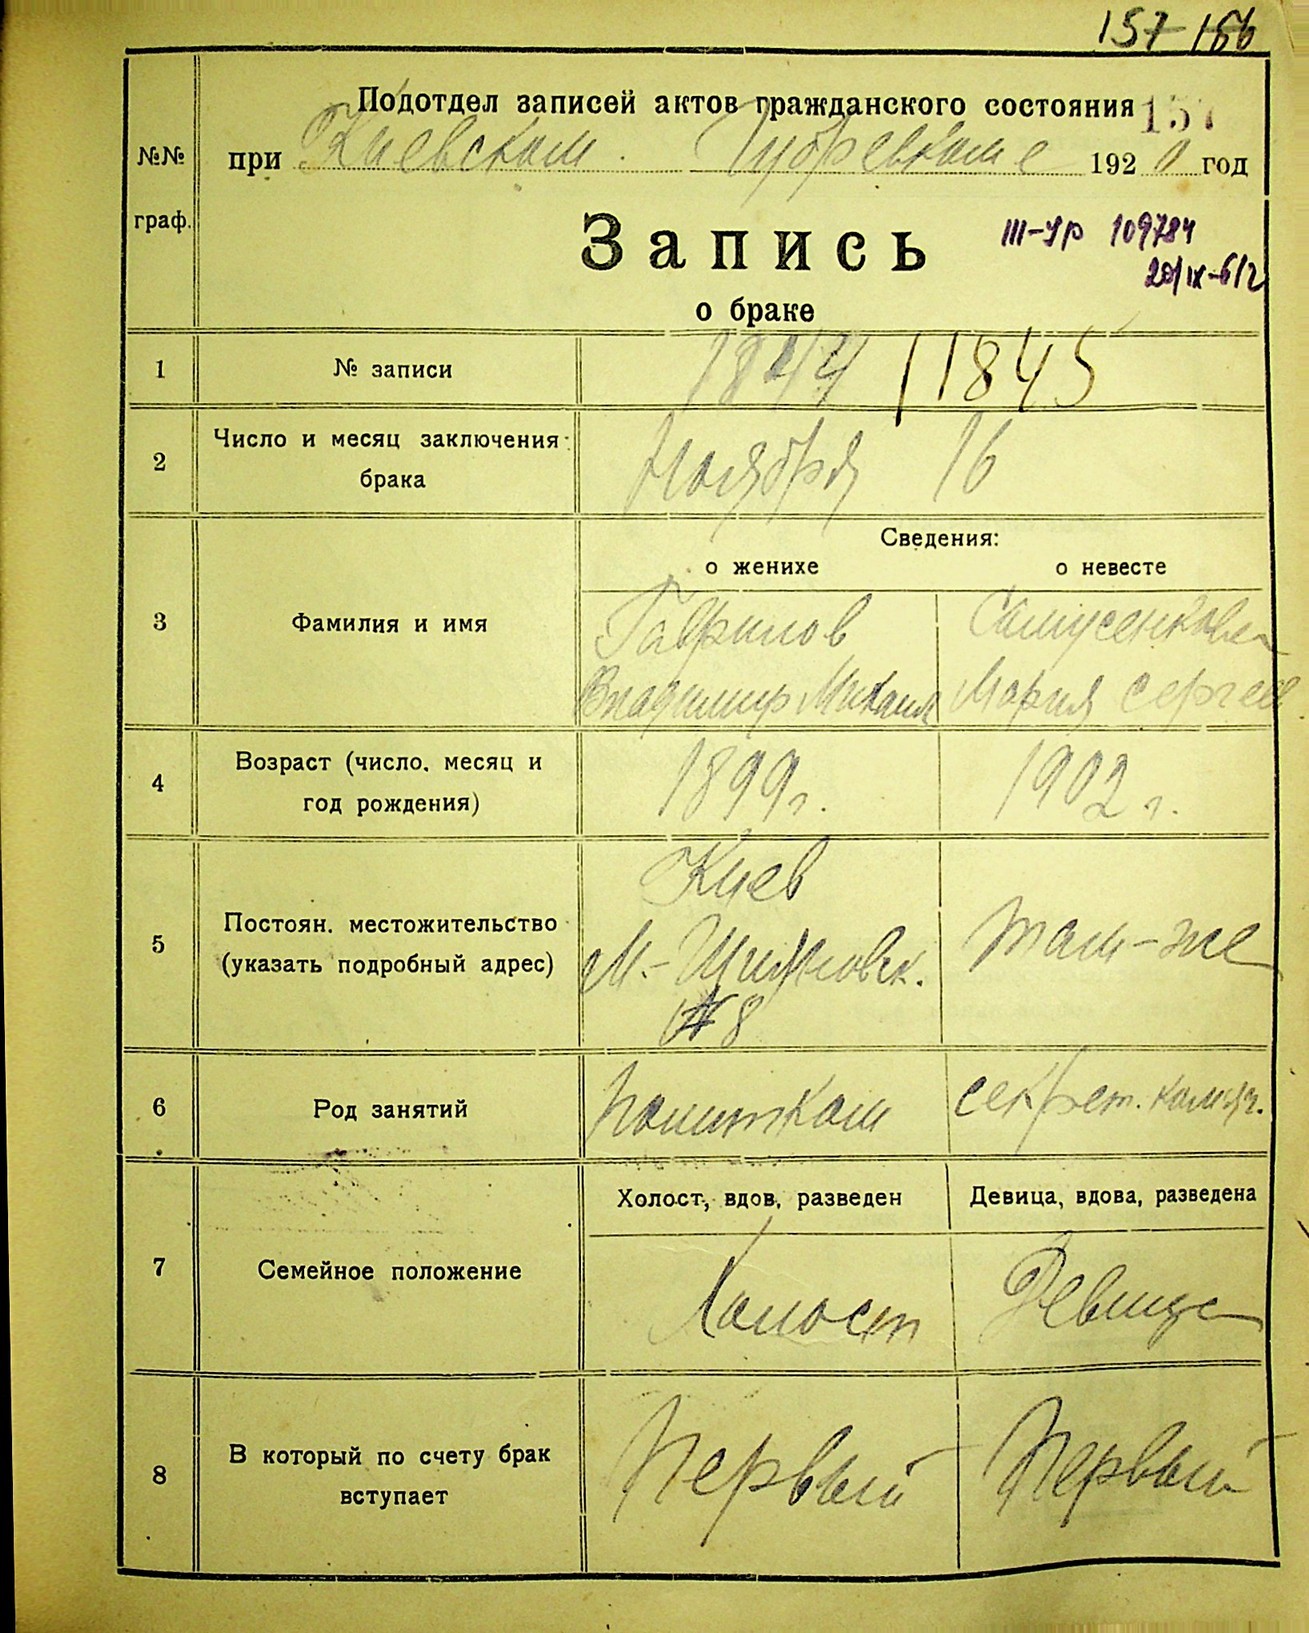 157 166
Подотдел записей актов гражданского состояния 157
№№ при Киевском Губревкоме 1920 год
граф.
Запись
III-УР 109784
20/IX-612
о браке
1 № записи 1844 / 1845
2 Число и месяц заключения брака Ноября 16
Сведения:
о женихе о невесте
3 Фамилия и имя
Гаврилов
Владимир Михаил
Самусенкова
Мария Сергее
4 Возраст (число, месяц и год рождения) 1899 г. 1902 г.
5 Постоян. местожительство (указать подробный адрес)
Киев
М.- 
№ 8
там-же
6 Род занятий Политком секрет. 
Холост, вдов, разведен Девица, вдова, разведена
7 Семейное положение Холост Девица
8 В который по счету брак вступает Первый Первый